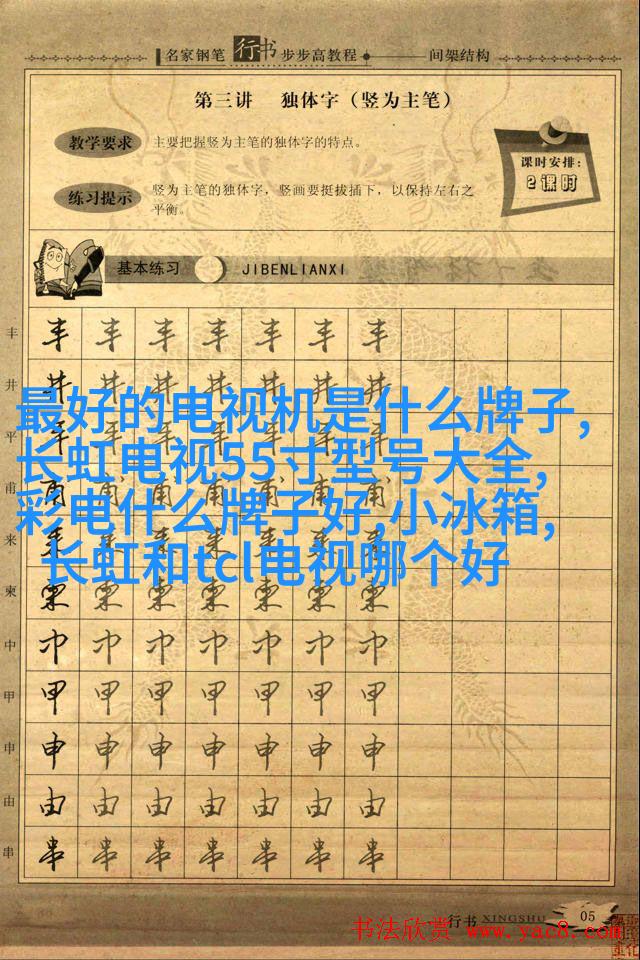 名家钢笔 行书 步步高教程 间架结构
第三讲 独体字（竖为主笔）
教学要求 主要把握竖为主笔的独体字的特点。
课时安排：
2课时
练习提示 竖为主笔的独体字，竖画要挺拔插下，以保持左右之
平衡。
基本练习 JIBENLIANXI
丰 丰 丰 丰 丰 丰 丰 丰
井 井 井 井 井 井 井 井
最好的电视机是什么牌子,
平 平 平 平 平 平 平 平
长虹电视55寸型号大全,
甫 甫 甫 甫 甫 甫 甫 甫
彩电什么牌子好,小冰箱,
来 来 来 来 来 来 来 来
长虹和tcl电视哪个好
柬 柬 柬 柬 柬 柬 柬 柬
中 中 中 中 中 中 中 中
甲 甲 甲 甲 甲 甲 甲 甲
申 申 申 申 申 申 申 申
由 由 由 由 由 由 由 由
串 串 串 串 串 串 串 串
行书 XINGSHU 05
书法欣赏 www.yac8.com